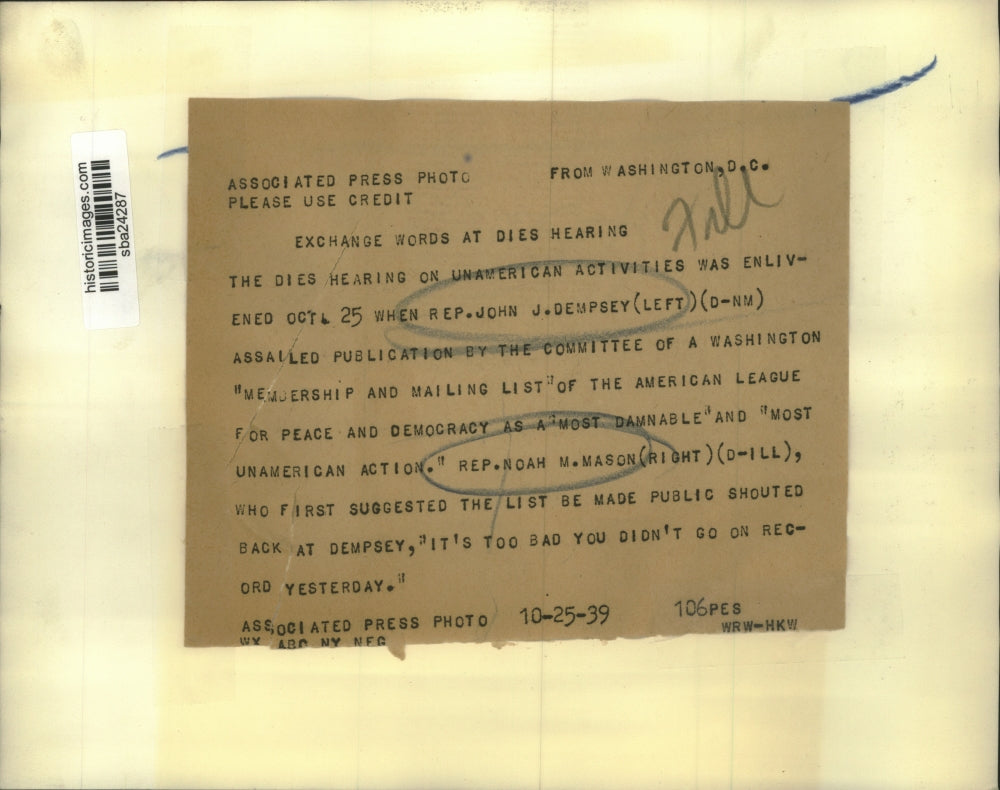 historicimages.com
sba24287
ASSOCIATED PRESS PHOTO FROM WASHINGTON, D.C.
PLEASE USE CREDIT
EXCHANGE WORDS AT DIES HEARING
THE DIES HEARING ON UNAMERICAN ACTIVITIES WAS ENLIV-
ENED OCT. 25 WHEN REP.JOHN J.DEMPSEY(LEFT)(D-NM)
ASSAILED PUBLICATION BY THE COMMITTEE OF A WASHINGTON
"MEMBERSHIP AND MAILING LIST"OF THE AMERICAN LEAGUE
FOR PEACE AND DEMOCRACY AS A"MOST DAMNABLE"AND "MOST
UNAMERICAN ACTION." REP.NOAH M.MASON(RIGHT)(D-ILL),
WHO FIRST SUGGESTED THE LIST BE MADE PUBLIC SHOUTED
BACK AT DEMPSEY,"IT'S TOO BAD YOU DIDN'T GO ON REC-
ORD YESTERDAY."
ASSOCIATED PRESS PHOTO 10-25-39 106PES
WRW-HKW
WX ABC NY NEG